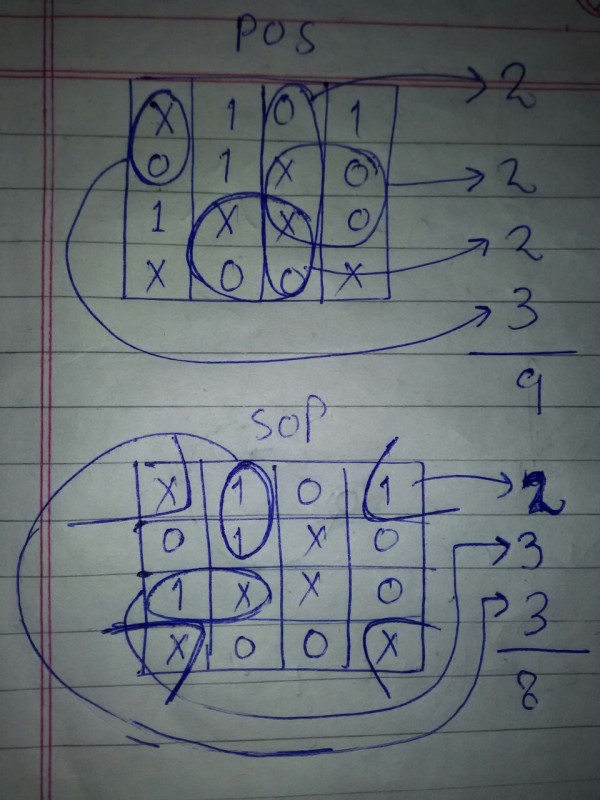 POS
X 1 0 1 2
0 1 X 0 2
1 X X 0 2
X 0 0 X 3
9
SOP
X 1 0 1 2
0 1 X 0 3
1 X X 0 3
X 0 0 X 8